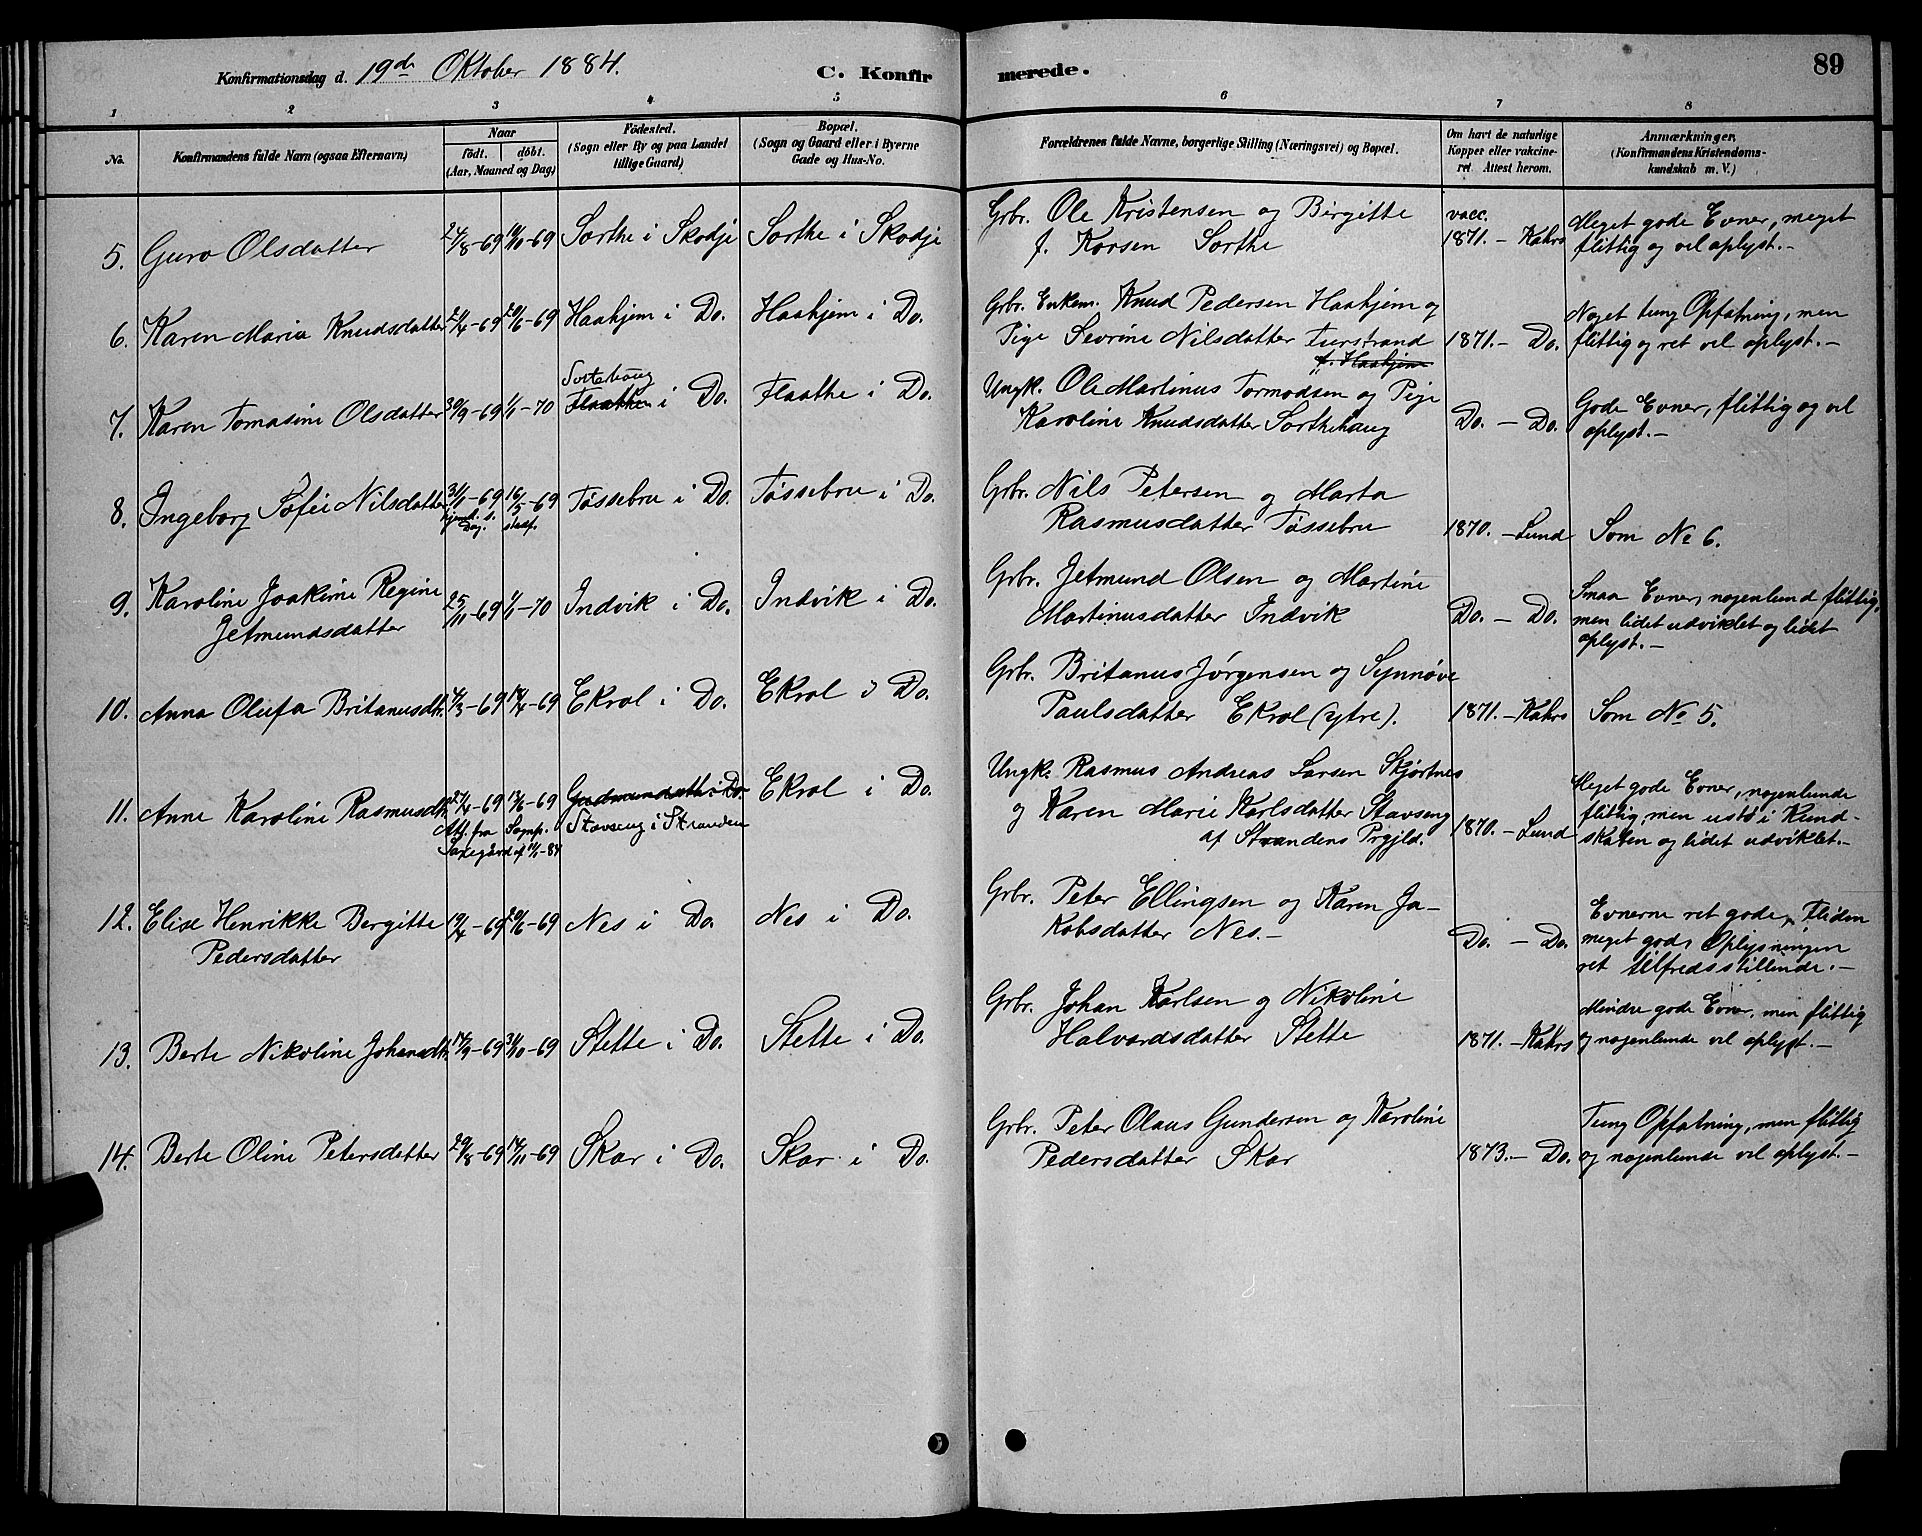 Konfirmationsdag d. 19de Oktober 1884.
C. Konfirmerede.
89
1 2 3 4 5 6 7 8
No.
Konfirmandens fulde Navn (ogsaa Efternavn).
Naar
födt. döbt.
(Aar, Maaned og Dag)
Födested.
(Sogn eller By og paa Landet
tillige Gaard.)
Bopæl.
(Sogn og Gaard eller i Byerne
Gade og Hus-No.
Forældrenes fulde Navne, borgerlige Stilling (Næringsvei) og Bopæl.
Om havt de naturlige
Kopper eller vakcine-
ret. Attest herom.
Anmærkninger.
(Konfirmandens Kristendoms-
kundskab m. V.)
5. Guro Olsdatter 24/8-69 10/10-69 Sorthe i Skodje Sorthe i Skodje
Grbr. Ole Kristensen og Birgitte
f. Korsen Sorthe
vacc.
1871. - Kahrs
Meget gode Evner, meget
flittig og vel oplyst.-
6. Karen Maria Knudsdatter 21/4-69 20/6-69 Haahjem i Do. Haahjem i Do.
Grbr. Enkem. Knud Pedersen Haahjem og
Pige Sevrine Nilsdatter Fuerstrand
f. Haahjem
1871.- Do.
Noget tung Opfatning, men
flittig og ret vel oplyst.-
7. Karen Tomasine Olsdatter 30/9-69 1/1-70
Sortehoug
Flaathe i Do. Flaathe i Do.
Ungk. Ole Martinus Tormodsen og Pige
Karoline Knudsdatter Sorthehaug
Do. - Do.
Gode Evner, flittig og vel
oplyst.-
8. Ingeborg Sofie Nilsdatter 31/1-69 16/5-69 Tøssebru i Do. Tøssebru i Do.
hjemd. s.
Dag. stadf.
Grbr. Nils Petersen og Marta
Rasmusdatter Tøssebru
1870. - Lund
Som No 6.
9. Karoline Joakime Regine
Jetmundsdatter
25/11-69 1/1-70 Indvik i Do. Indvik i Do.
Grbr. Jetmund Olsen og Martine
Martinusdatter Indvik
Do. - Do.
Smaa Evner, nogenlund flittig,
men lidet udviklet og lidet
oplyst.-
10. Anna Olufa Britanusdtr. 4/3-69 18/4-69 Ekrol i Do. Ekrol i Do.
Grbr. Britanus Jørgensen og Synnøve
Paulsdatter Ekrol (ytre).
1871. - Kahrs
Som No 5.
11. Anne Karoline Rasmusdtr. 27/4-69 13/6-69 Gudmundseth i Do. Ekrol i Do.
Att. fra Sognp.
Saxegård af 11/1-84
Stavseng i Stranden
Ungk. Rasmus Andreas Larsen Skjørtnes
og Karen Marie Karlsdatter Stavseng
af Strandens Prgjld.
1870. - Lund
Meget gode Evner, nogenlunde
flittig, men ustø i Kund-
skaben og lidet udviklet.-
12. Elise Henrikke Bergitte
Pedersdatter
19/4-69 20/6-69 Nes i Do. Nes i Do.
Grbr. Peter Ellingsen og Karen Ja-
kobsdatter Nes.-
Do. - Do.
Evnerne ret gode, Fliden
meget god, Oplysningen
ret tilfredsstillende.-
13. Berte Nikoline Johansdtr. 14/9-69 31/10-69 Stette i Do. Stette i Do.
Grbr. Johan Karlsen og Nikoline
Halvardsdatter Stette
1871. - Kahrs
Mindre gode Evner, men flittig
og nogenlunde vel oplyst.-
14. Berte Oline Petersdatter 29/8-69 14/11-69 Skar i Do. Skar i Do.
Grbr. Peter Olaus Gundersen og Karoline
Pedersdatter Skar
1873.- Do.
Tung Opfatning, men flittig
og nogenlunde vel oplyst.-